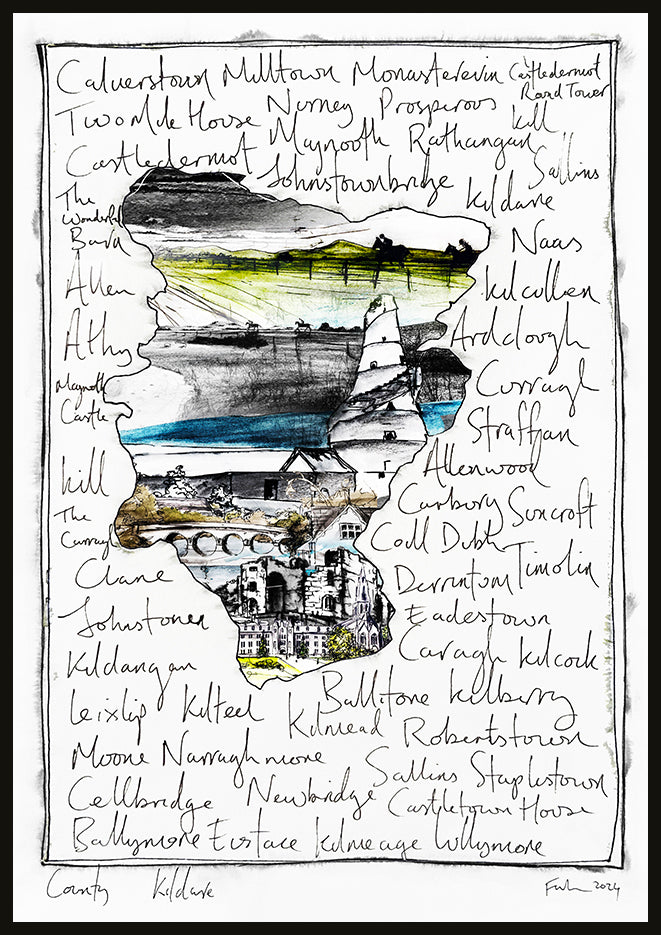 Calverstown Milltown Monasterevin Castledermot
Round Tower
Two Mile House Nurney Prosperous Kill
Castledermot Maynooth Rathangan
Johnstownbridge Sallins
The
Wonderful
Barn
Kildare
Naas
Allen
Kilcullen
Athy
Ardclough
Maynooth
Castle
Curragh
Straffan
Kill
Allenwood
The
Curragh
Carbury Suncroft
Coill Dubh
Clane
Derrinturn Timolin
Johnstown
Eadestown
Kildangan
Caragh Kilcock
Leixlip Kilteel Kilmead Ballitore Kilberry
Robertstown
Moone Narraghmore
Sallins Staplestown
Cellbridge Newbridge Castletown House
Ballymore Eustace Kilmeage Lullymore
County Kildare
2024